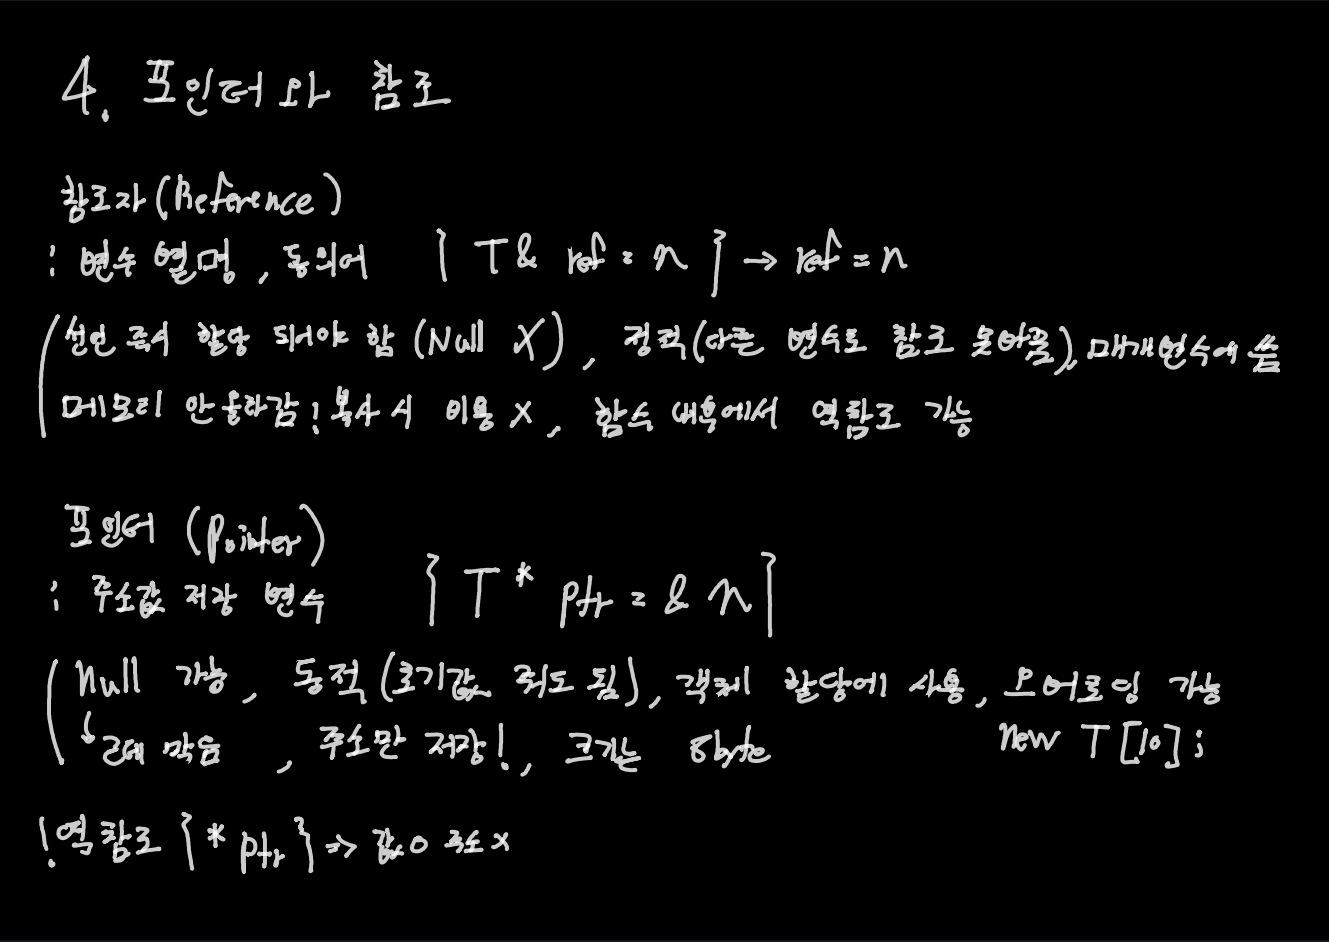 4. 포인터와 참조
참조자 (Reference)
: 변수 별명, 동의어 { T& ref = n } → ref = n
선언 즉시 할당 되어야 함 (Null X), 정적(다른 변수로 참조 못바꿈), 매개변수에 씀
메모리 안올라감! 복사 시 비용 X, 함수 내부에서 역참조 가능
포인터 (Pointer)
: 주소값 저장 변수 { T * ptr = & n }
Null 가능, 동적(초기값 줘도 됨), 객체 할당에 사용, 오버로딩 가능
↳ 근데 막음, 주소만 저장!, 크기는 8byte new T[10];
! 역참조 { * ptr } => 값 O 주소 X